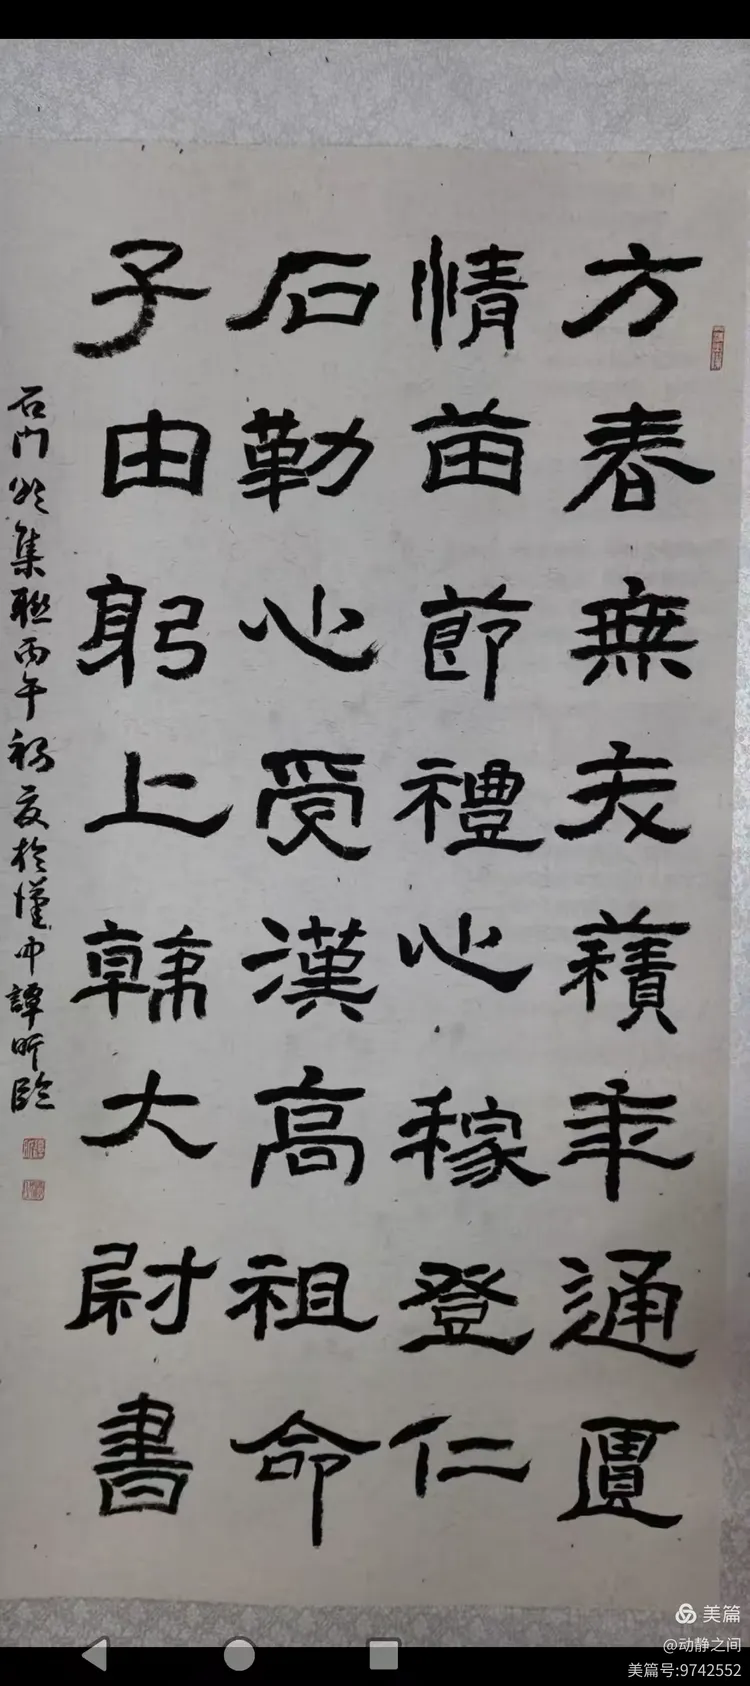 方春無灾蓺年通匱
情苗節禮心稼登仁
石勒心受漢高祖命
子由躬上韓大尉書
石门颂集联丙午初夏於漢中譚昕臨
美篇
@动静之间
美篇号:9742552